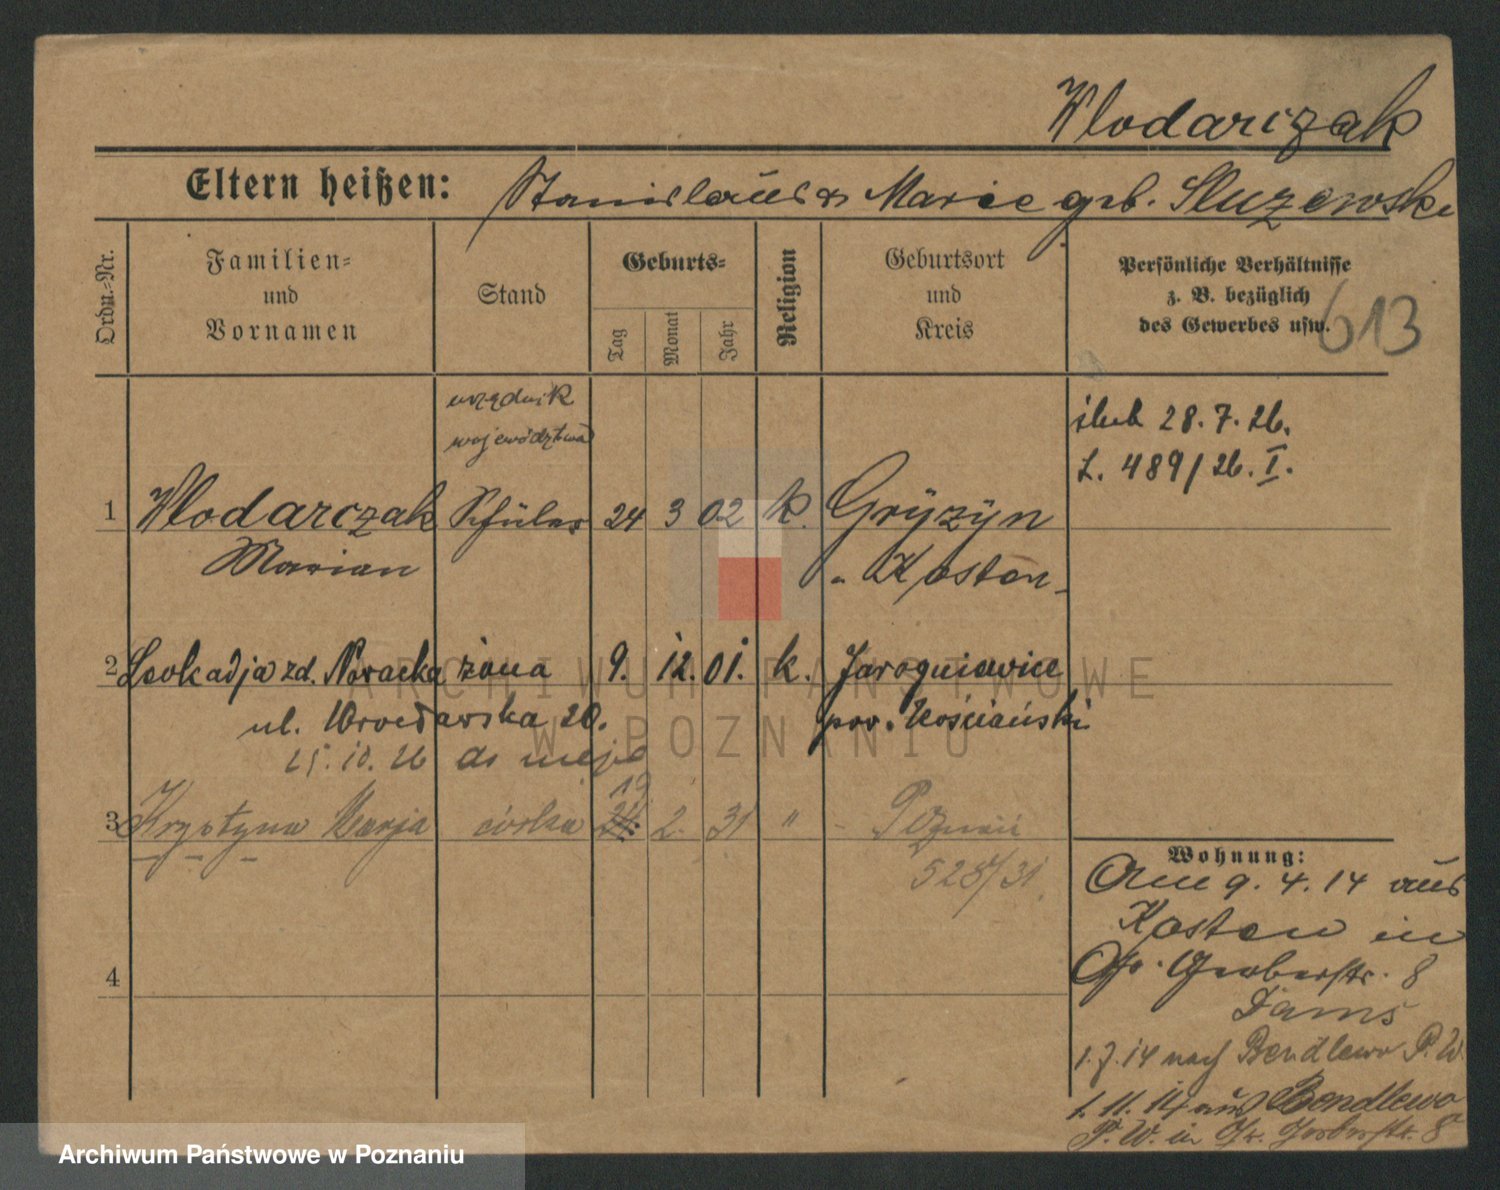 Wlodarczak
Eltern heißen: Stanislaus & Marie geb. Sluzewski
Ordn.-Nr.
Familien-
und
Vornamen
Stand
Geburts-
Tag
Monat
Jahr
Religion
Geburtsort
und
Kreis
Persönliche Verhältnisse
z. B. bezüglich
des Gewerbes usw.
613
urzędnik
województwa
ślub 28.7.26.
L. 489/26. I.
1 Wlodarczak Schüler 24 3 02 k. Gryzyn
Marian " Kosten
2 Leokadja zd. Nowacka żona 9. 12. 01. k. Jarogniewice
ul. Wrocławska 20. pow. Kościański
25.10.26 do niego
19
3 Krystyna Marja córka 24. 2. 31 " Poznań
525/31.
4
Wohnung:
Am 9. 4. 14 aus
Kosten in
Gerberstr. 8
1.7.14 nach Bendlewo P. W.
1. 11. 14 aus Bendlewo
P. W. in Gerberstr. 8
ARCHIWUM PAŃSTWOWE
W POZNANIU
Archiwum Państwowe w Poznaniu